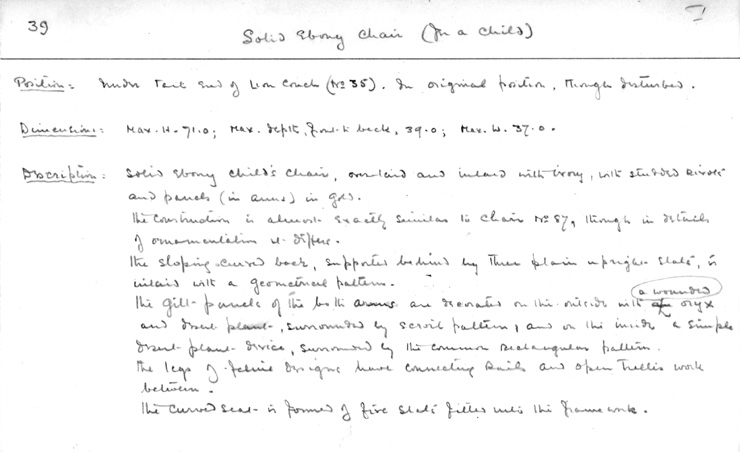 39
I
Solid Ebony Chair (for a child)
Position: Under Tail End of Lion Couch (No 35). In original position, though disturbed.
Dimensions: Max. H. 71.0; Max. depth, front to back, 39.0; Max. W. 37.0.
Description: Solid Ebony child's chair, overlaid and inlaid with ivory, with studded rivets
and panels (in arms) in gold.
The construction is almost exactly similar to chair No 87, though in details
of ornamentation it differs.
The sloping curved back, supported behind by three plain upright slats, is
inlaid with a geometrical pattern.
a wounded
The gilt panels of the both arms are decorated on the outside with oryx
and desert plant, surrounded by scroll pattern, and on the inside a simple
desert plant device, surrounded by the common rectangular pattern.
The legs of feline designs have connecting rails and open trellis work
between.
The curved seat is formed of five slats fitted into the framework.